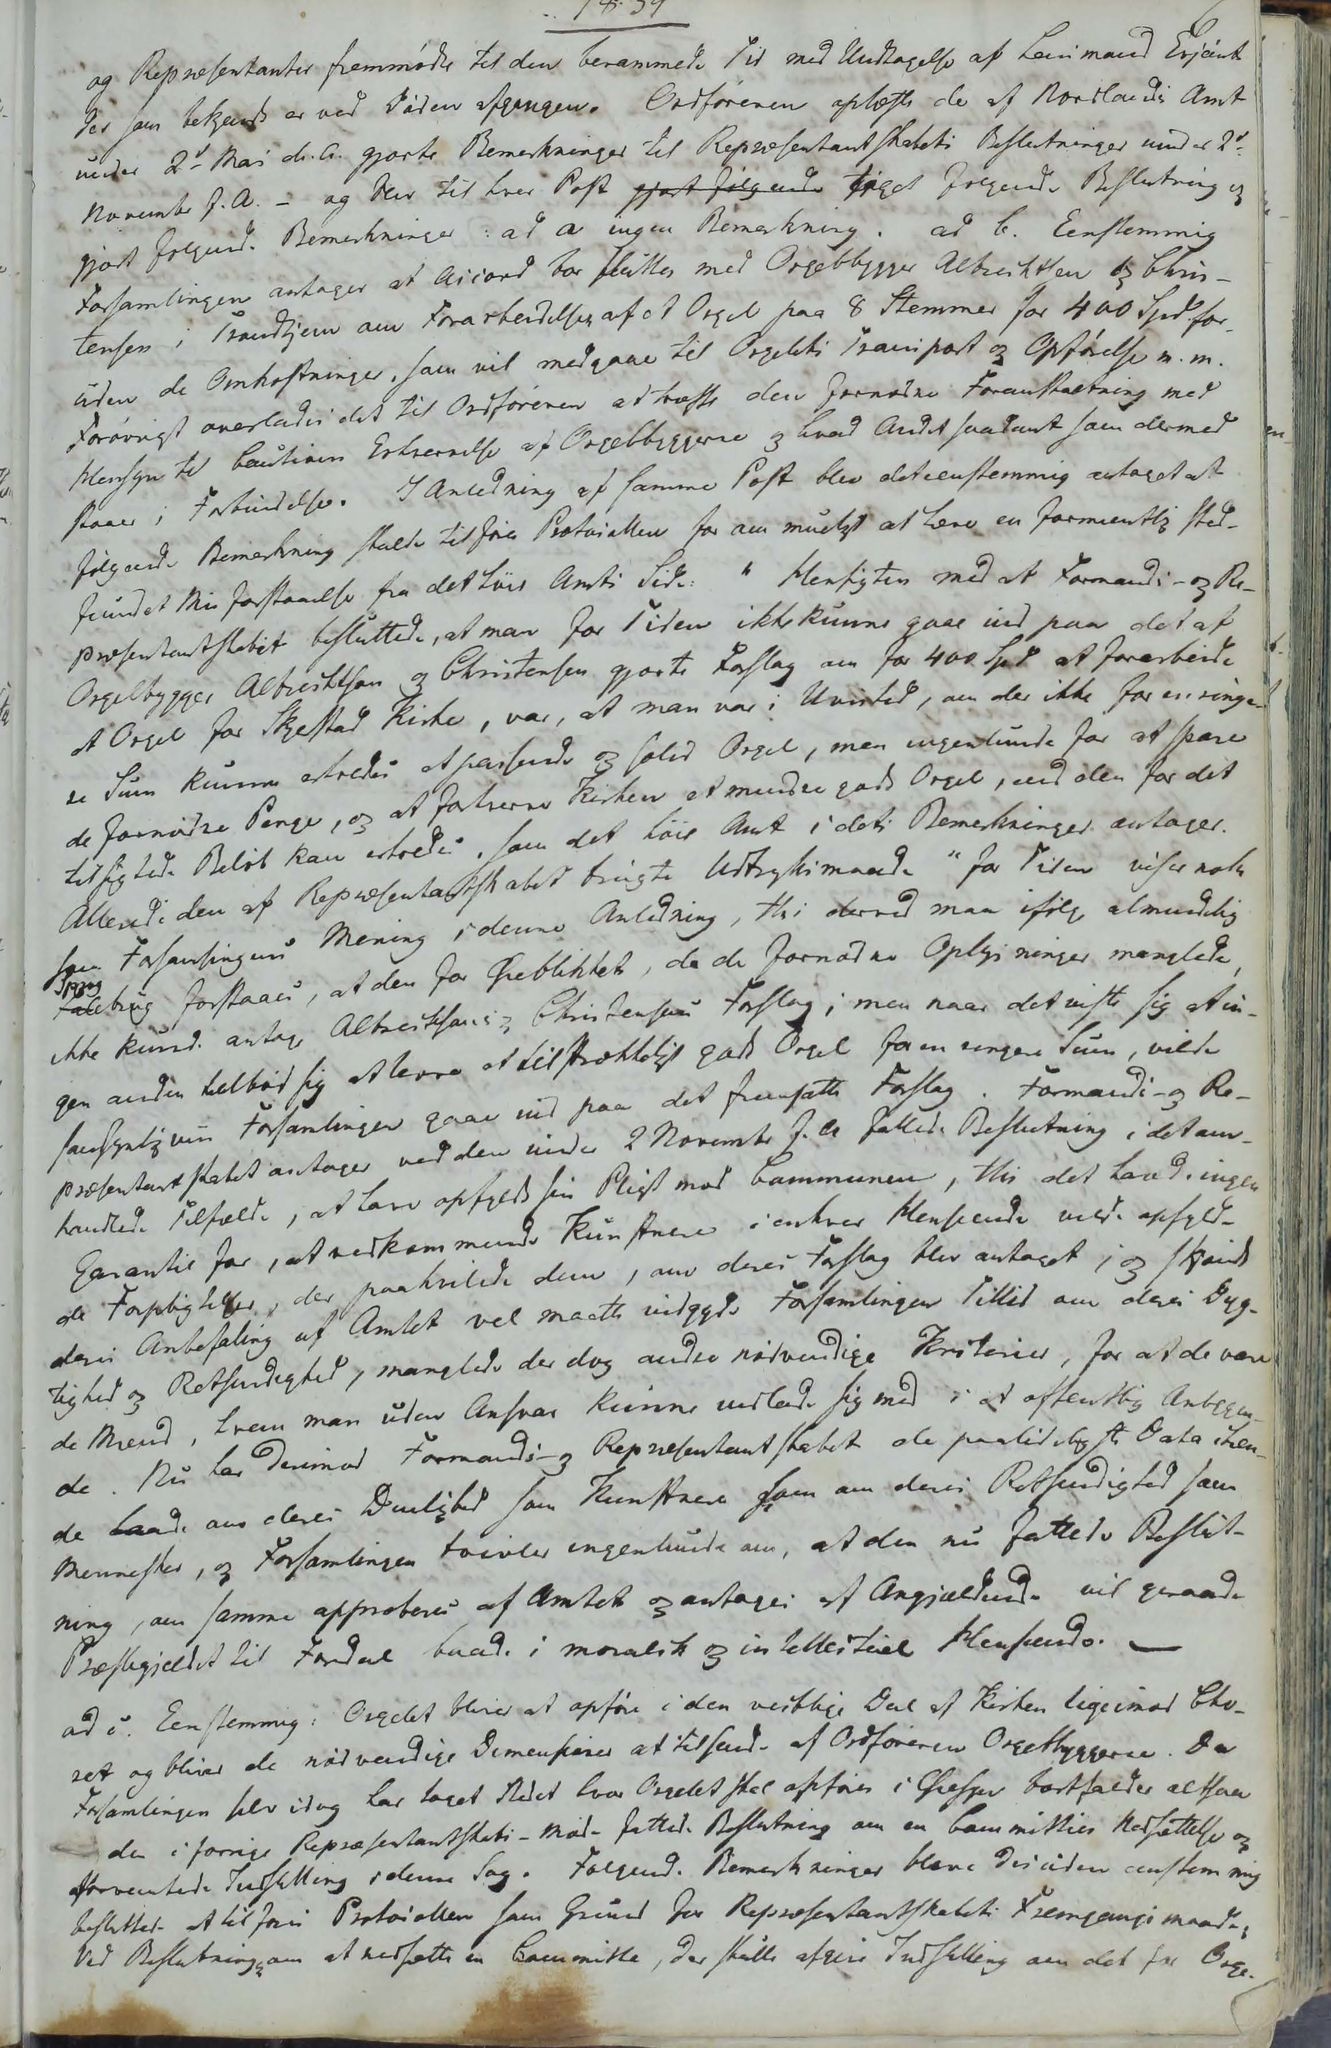 1839
og Repræsentanter fremmødte til den berammede Tid med Undtagelse af Lensmand
der som bekjendt er ved Døden afgangen. Ordføreren oplæste de af Nordlands Amt
under 2d Mai d.A. gjorte Bemerkninger til Repræsentantskabets Beslutninger under 2d
Novembr f.A. – og blev til hver Post gjort følgende taget følgende Beslutning og
gjort følgende Bemerkninger: ad a ingen Bemerkning. ad b. Eenstemmig
Forsamlingen antager at Accord bør sluttes med Orgelbygger Albrechtsen og Chris-
tensen i Trondhjem om Forarbeidelse af et Orgel paa 8 Stemmer for 400 Spd for-
uden de Omkostninger, som vil medgaae til Orgelets Transport og Opførelse m.m.
Forøvrigt overlades det til Ordføreren at træffe den fornødne Foranstaltning med
Hensyn til Cautions Erhvervelse af Orgelbyggerne og hvad Andet saadant som dermed
staaer i Forbindelse. I Anledning af samme Post blev det eenstemmig antaget at
følgende Bemerkning skulde tilføres Protocollen for om mueligt at hæve en formeentlig sted-
fundet Misforstaaelse fra det høie Amts Side: " Hensigten med at Formands- og Re-
præsentantskabet besluttede, at man for Tiden ikke kunne gaae ind paa det af
Orgelbygger Albrechtsen og Christensen gjorte Forslag om for 400 Spd at forarbeide
et Orgel for Skjestad Kirke, var, at man var i Uvished, om der ikke for en ringe-
re Sum kunne erholdes et passende og solid Orgel, men ingenlunde for at spare
de fornødne Penge, og at forhverve Kirken et mindre godt Orgel, end den for det
tilsigtede Beløb kan erholde, som det høie Amt i dets Bemerkninger antager.
Allerede den af Repræsentantskabet brugte Udtryksmaade "for Tiden viser nok
som Forsamlingens Mening i denne Anledning, thi derved maa ifølge almindelig
Sprog
brug forstaaes, at den for Øieblikket, da de fornødne Oplysninger manglede,
ikke kunde antage Albrechtsens og Christensens Forslag; men naar det viste sig at in-
gen anden tilbød sig at levere et tilstrækkeligt godt Orgel for en ringere Sum, vilde
sandsynligviis Forsamlingen gaae ind paa det fremsatte Forslag. Formands- og Re-
præsentantskabet antager ved den under 2 Novembr f.A. fattede Beslutning i det om-
handlede Tilfælde, at have opfyldt sin Pligt mod Communen, thi det havde ingen
Garantie for, at vedkommende Kunstnere i enhver Henseende vilde opfyld-
de Forpligtelser, der paahvilede dem, om deres Forslag blev antaget; og skjønt
deres Anbefaling af Amtet vel maatte indgyde Forsamlingen Tillid om deres Dyg-
tighed og Retsindighed, manglede der dog andre nødvendige Kriterier, for at de vare
de Mænd, hvem man uden Ansvar kunne indlade sig med i et offentlig Anliggen-
de. Nu har derimod Formands- og Repræsentantskabet de paalideligste Data ihæn-
de baade om deres Duelighed som Kunstnere som om deres Retsindighed som
Mennesker, og Forsamlingen tvivler ingenlunde om, at den nu fattede Beslut-
ning, om samme approberes af Amtet og antages af Angjældende vil geraade
Præstegjeldet til Fordeel baade i moralsk og intellectuel Henseende. —
ad c. Eenstemmig: Orgelet bliver at opføre i den vestlige Deel af Kirken ligeimod Cho-
ret og bliver de nødvendige Dimensioner at tilsende af Ordføreren Orgelbyggerne. Da
Forsamlingen selv idag har taget Stedet hvor Orgelet skal opføres i Øiesyn bortfalder altsaa
den i forrige Repræsentantskabs-Møde fattede Beslutning om en Committees Nedsættelse og
forventede Indstilling i denne Sag. Følgende Bemerkninger bleve desuden eenstemmig
besluttet at tilføres Protocollen som Grund for Repræsentantskabets Fremgangsmaade:
Ved Beslutningen om at nedsætte en Committe, der skulle afgive Indstilling om det for Orge-